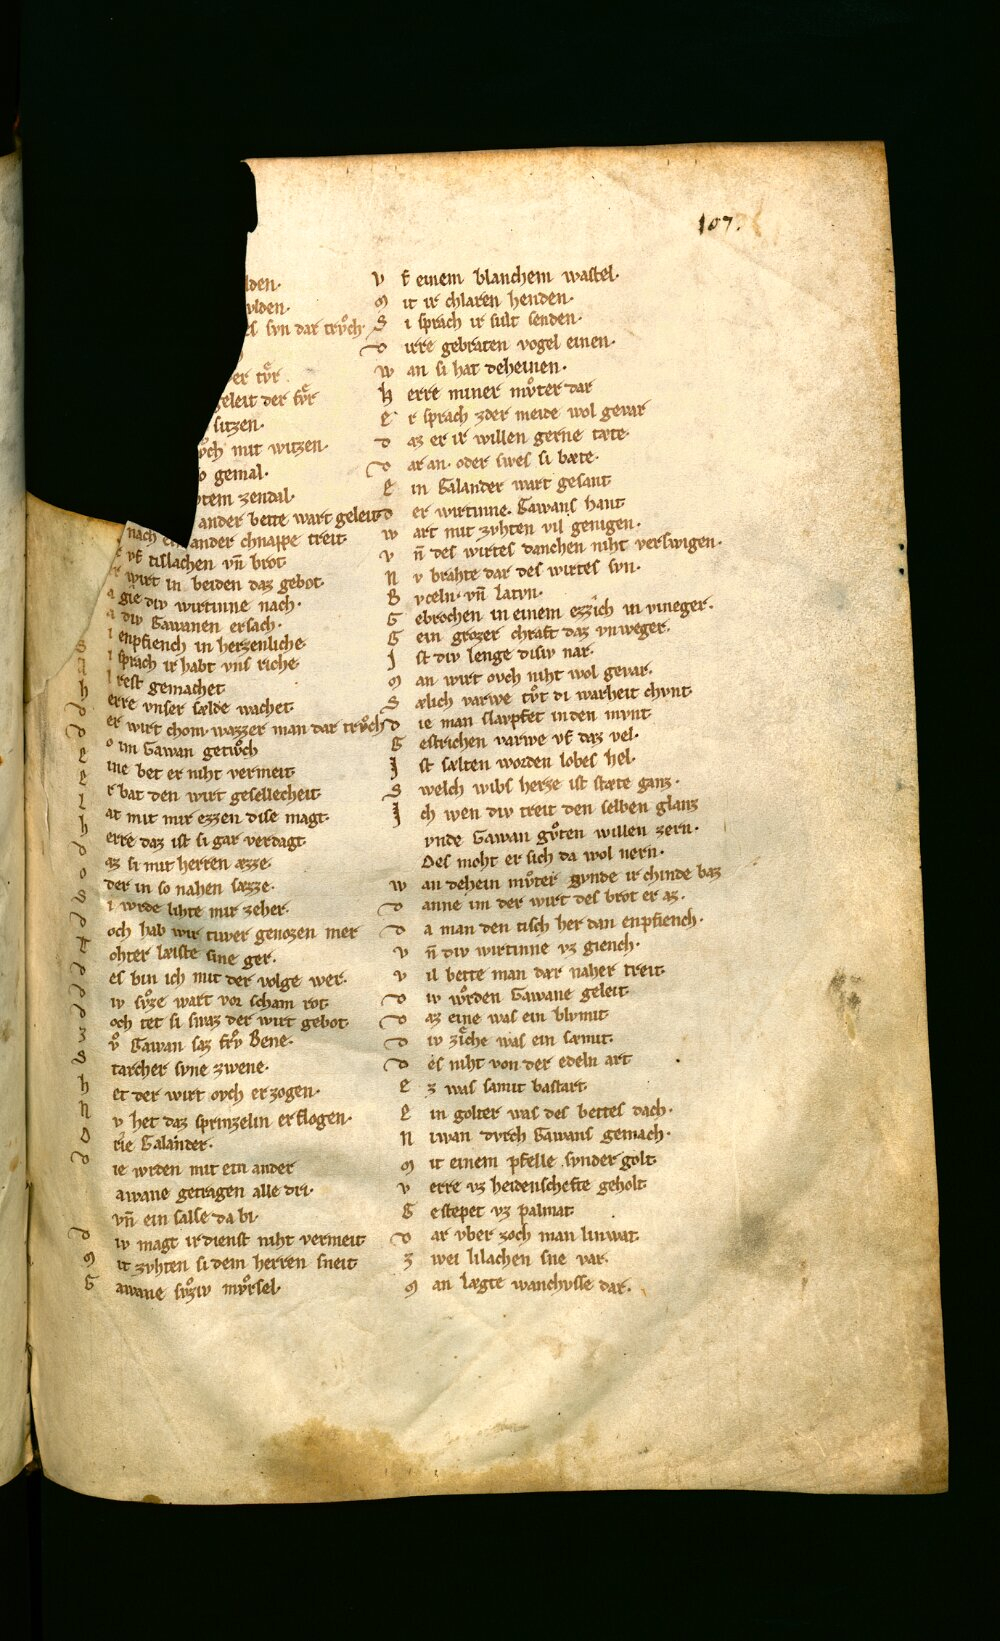 107.
lden.
vlden.
es syn dar trvͦch.
er tvͤr
geleit der fvͤr
sitzen.
vͦch mit witzen.
o gemal.
otem zendal.
ander bette wart geleit
nach ein ander chnappe treit
vf tislachen vn̄ brot
r wirt in beiden daz gebot
a gie div wirtinne nach.
a div Gawanen ersach.
S i enpfiench in herzenliche
S i sprach ir habt vns riche
A l rest gemachet
h erre vnser sælde wachet
D er wirt chom. wazzer man dar trvͦch
D o im Gawan getwͦch
E ine bet er niht vermeit
E r bat den wirt gesellecheit
L at mit mir ezzen dise magt.
h erre daz ist si gar verdagt
D az si mit herren æzze
O der in so nahen sæzze.
S i wrde lihte mir zeher.
D och hab wir tiwer genozen mer
T ohter læiste sine ger.
D es bin ich mit der volge wer.
D iv svͦze wart vor scham rot
D och tet si swaz der wirt gebot
Z vͦ Gawan saz frͦv Bene.
S tarcher syne zwene.
h et der wirt ovch erzogen.
N v het daz sprinzelin erflogen.
D rîe Galander.
D ie wrden mit ein ander
Gawane getragen alle dri.
vn̄ ein salse da bi.
D iv magt ir dienst niht vermeit
M it zvhten si dem herren sneit
G awane svͦziv mvͦrsel.
V f einem blanchem wastel.
M it ir chlaren henden.
S i sprach ir sult senden.
D irre gebraten vogel einen.
W an si hat deheinen.
H erre miner mvͦter dar
E r sprach zder meide wol gevar
D az er ir willen gerne tæte
D ar an. oder swes si bæte.
E in Galander wart gesant
D er wirtinne. Gawans hant
W art mit zvhten vil genigen.
V n̄ des wirtes danchen niht verswigen.
N v brahte dar des wirtes svn.
B vrceln. vn̄ latvn.
G ebrochen in einem ezzich in vineger.
G ein grozer chraft daz vnweger.
J st div lenge disiv nar.
M an wirt ovch niht wol gevar.
S ælich varwe tvͦt di warheit chvnt
D ie man slavpfet inden mvnt
G estrichen varwe vf daz vel.
J st sælten worden lobes hel.
S welch wibs herze ist stæte ganz.
J ch wen div treit den selben glanz
vnde Gawan gvͦten willen zern.
Des moht er sich da wol nern.
W an dehein mvͦter gvnde ir chinde baz
D anne im der wirt des brot er az.
D a man den tisch her dan enpfiench.
V n̄ div wirtinne vz giench.
V il bette man dar naher treit
D iv wͦrden Gawane geleit
D az eine was ein blvmit
D iv zîche was ein sæmit.
D es niht von der edeln art
E z was samit bastart
E in golter was des bettes dach.
N iwan dvrch Gawans gemach.
M it einem pfelle svnder golt
V erre vz heidenschefte geholt
G estepet vz palmat
D ar vber zoch man linwat
Z wei lilachen sne var.
M an lægte wanchvsse dar.